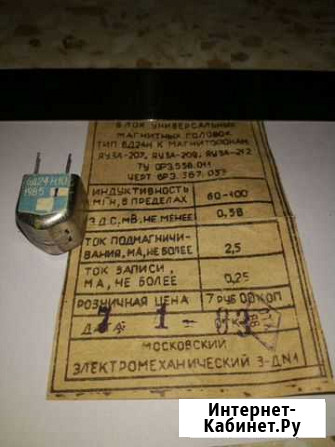 БЛОК УНИВЕРСАЛЬНЫХ
МАГНИТНЫХ ГОЛОВОК
ТИП БД24Н К МАГНИТОФОНАМ
ЯУЗА-207, ЯУЗА-209, ЯУЗА-212
ТУ 6Р3.556.011
ЧЕРТ 6Р3.367.057
ИНДУКТИВНОСТЬ МГН, В ПРЕДЕЛАХ 60-100
Э.Д.С, МВ, НЕ МЕНЕЕ 0,58
ТОК ПОДМАГНИЧИ-
ВАНИЯ, МА, НЕ БОЛЕЕ 2,5
ТОК ЗАПИСИ,
МА, НЕ БОЛЕЕ 0,25
РОЗНИЧНАЯ ЦЕНА 7 РУБ 00 КОП
МОСКОВСКИЙ
ЭЛЕКТРОМЕХАНИЧЕСКИЙ З-Д N1
6Д24Н1О
1985
Интернет-
Кабинет.Ру